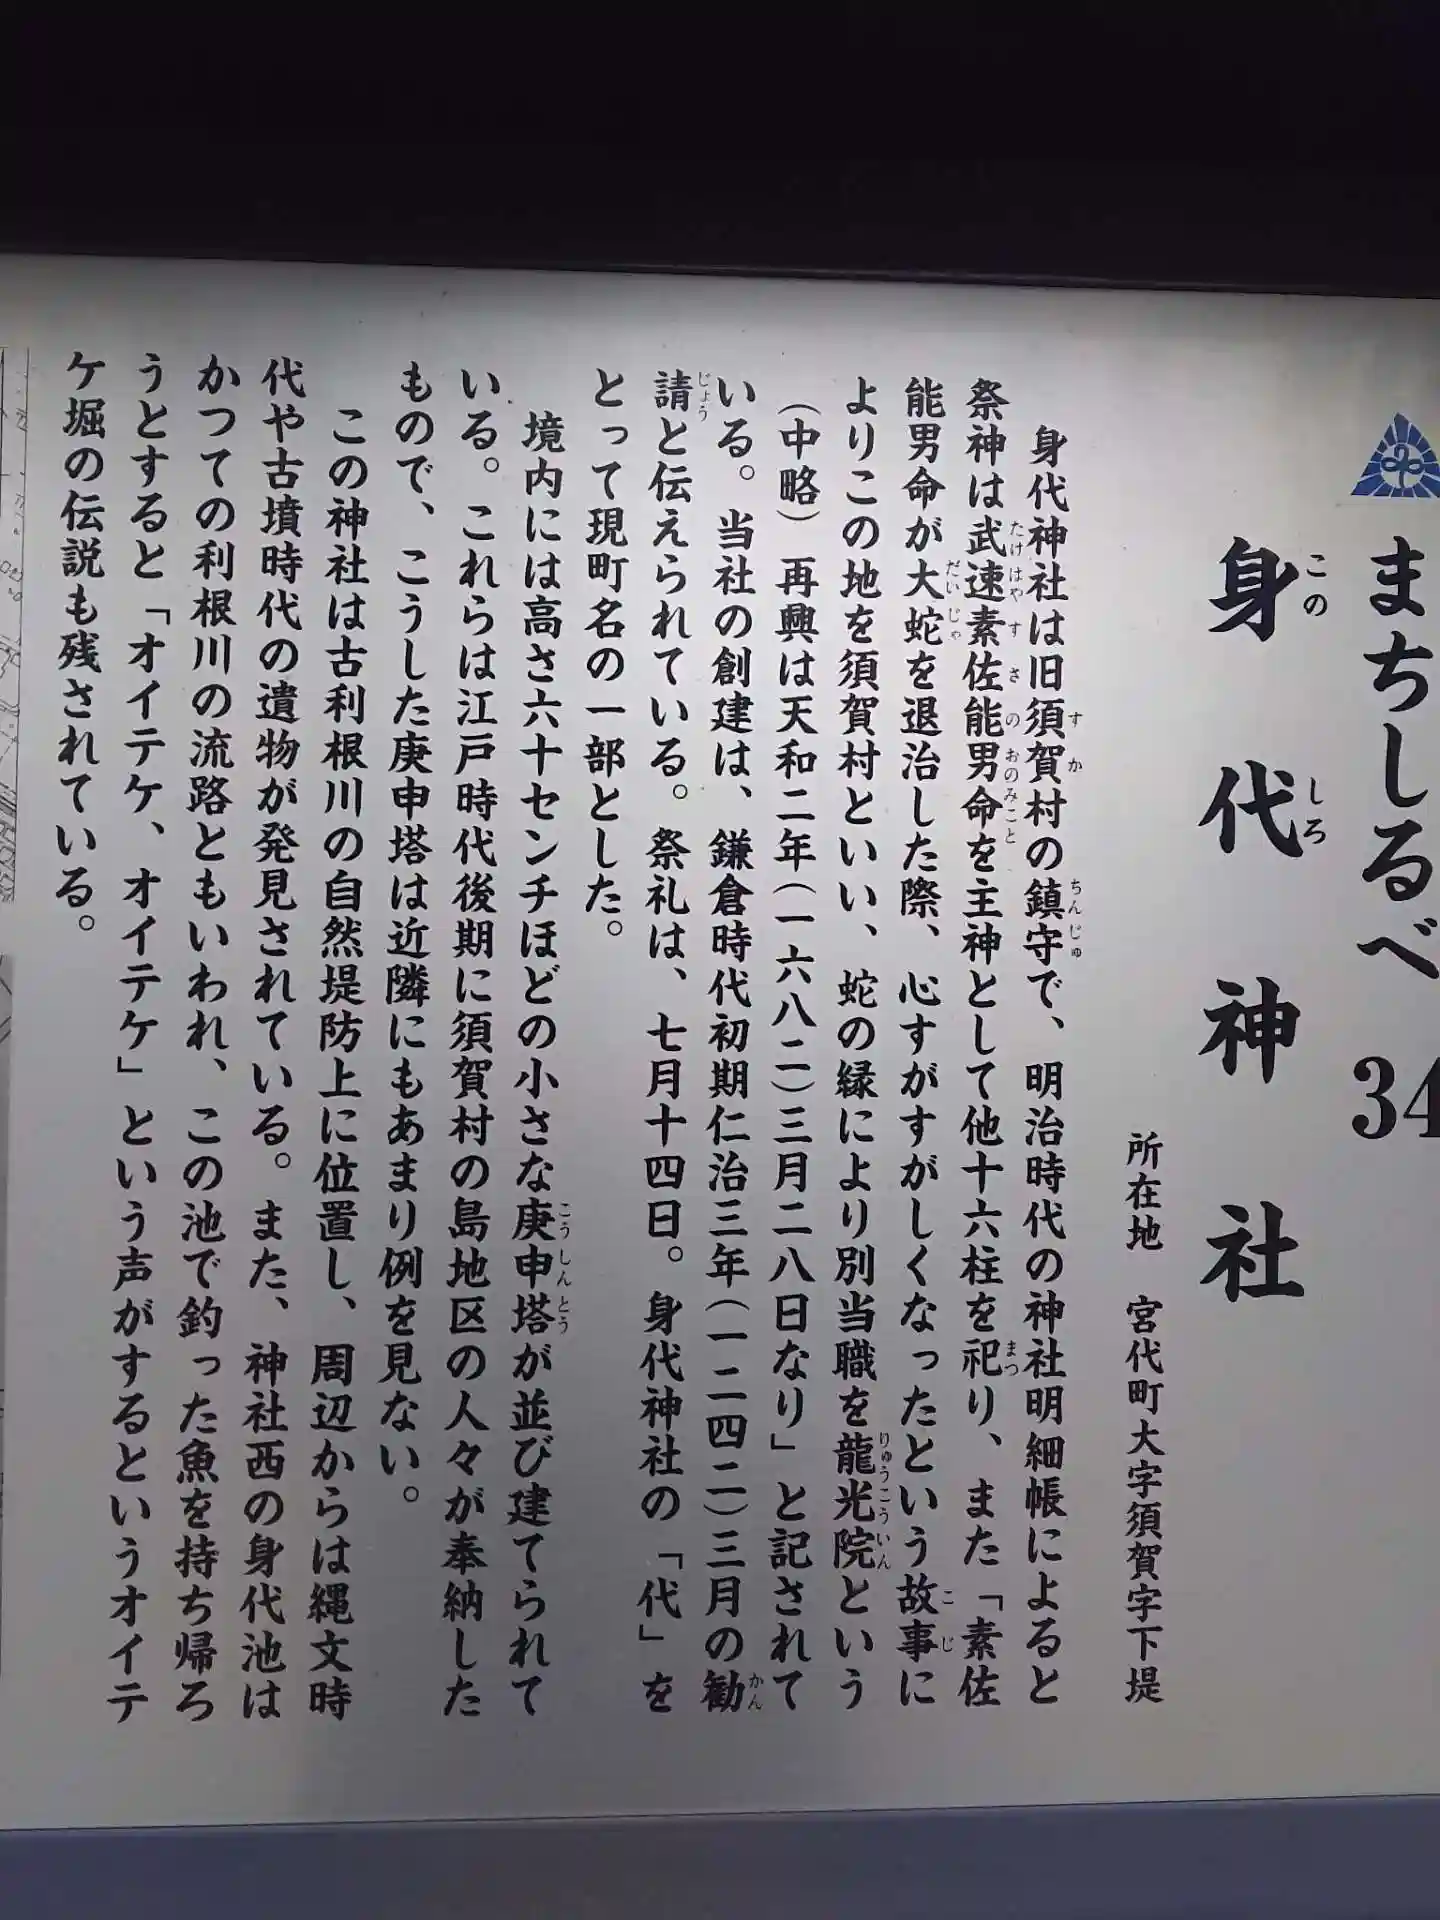 まちしるべ 34
身代神社
このしろ
所在地 宮代町大字須賀字下堤
身代神社は旧須賀村の鎮守で、明治時代の神社明細帳によると
祭神は武速素佐能男命を主神として他十六柱を祀り、また「素佐
能男命が大蛇を退治した際、心すがすがしくなったという故事に
よりこの地を須賀村といい、蛇の縁により別当職を龍光院という
(中略)再興は天和二年(一六八二)三月二八日なり」と記されて
いる。当社の創建は、鎌倉時代初期仁治三年(一二四二)三月の勧
請と伝えられている。祭礼は、七月十四日。身代神社の「代」を
とって現町名の一部とした。
境内には高さ六十センチほどの小さな庚申塔が並び建てられて
いる。これらは江戸時代後期に須賀村の島地区の人々が奉納した
もので、こうした庚申塔は近隣にもあまり例を見ない。
この神社は古利根川の自然堤防上に位置し、周辺からは縄文時
代や古墳時代の遺物が発見されている。また、神社西の身代池は
かつての利根川の流路ともいわれ、この池で釣った魚を持ち帰ろ
うとすると「オイテケ、オイテケ」という声がするというオイテ
ケ堀の伝説も残されている。